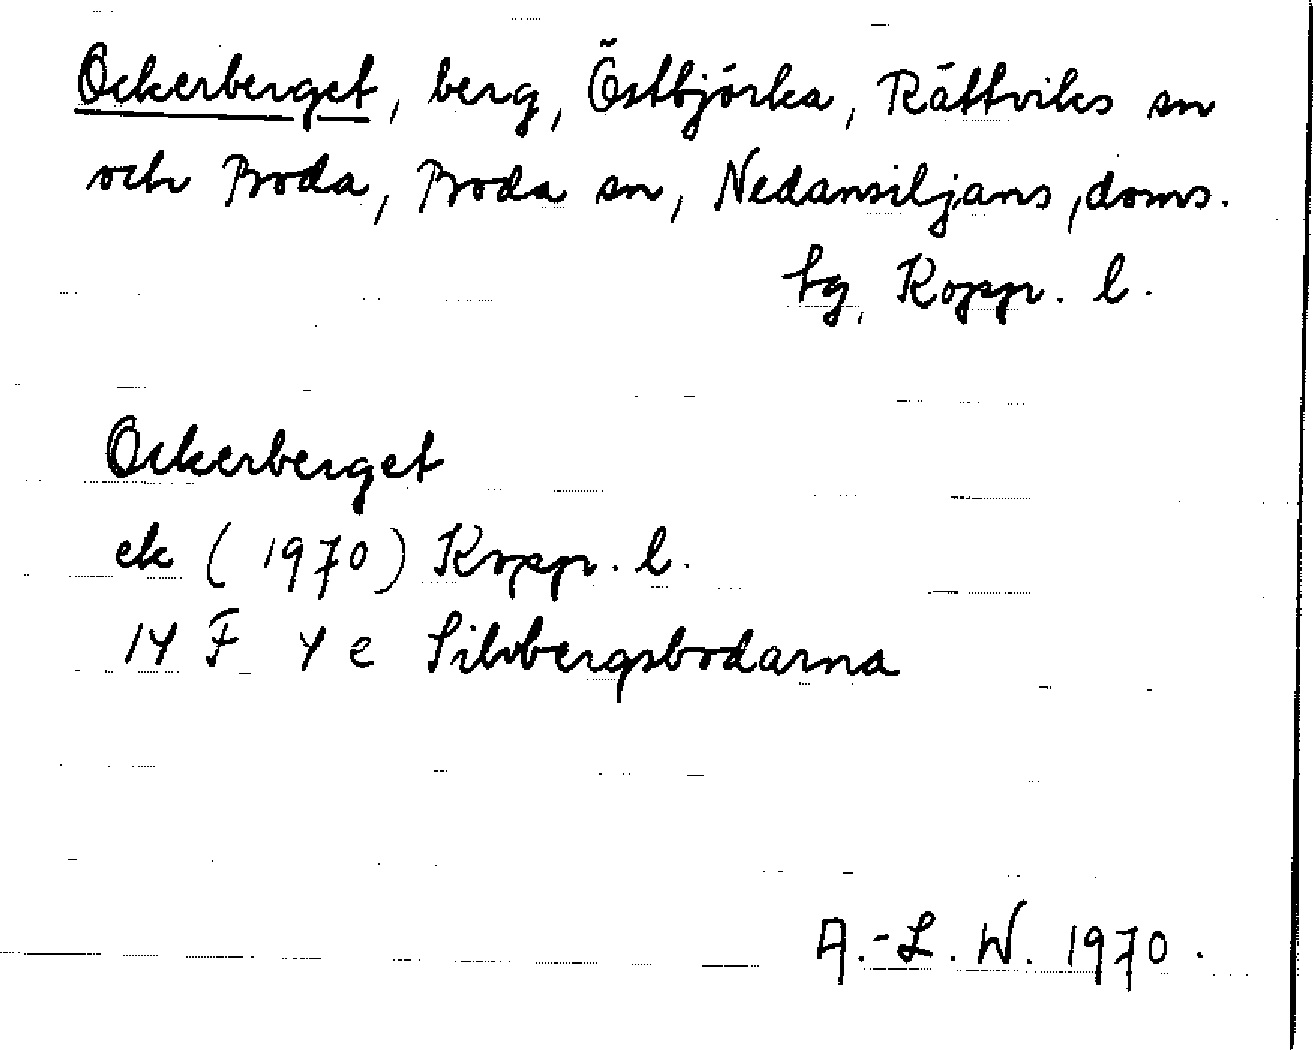 Ockerberget, berg, Östbjörka, Rättviks sn
och Boda, Boda sn, Nedansiljans, doms.
sg, Kopp. l.
Ockerberget
ek (1970) Kopp. l.
14 F 4 e Silvbergsbodarna
A.-L. W. 1970.